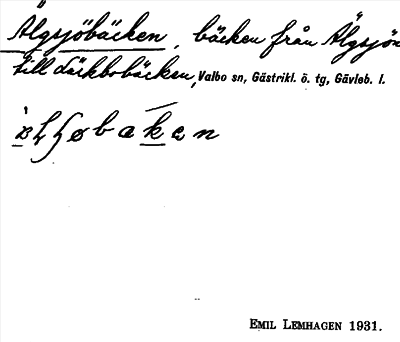 Älgsjöbäcken, bäcken från Älgsjön
till Läckbobäcken, Valbo sn, Gästrikl. ö. tg, Gävleb. l.
EMIL LEMHAGEN 1931.